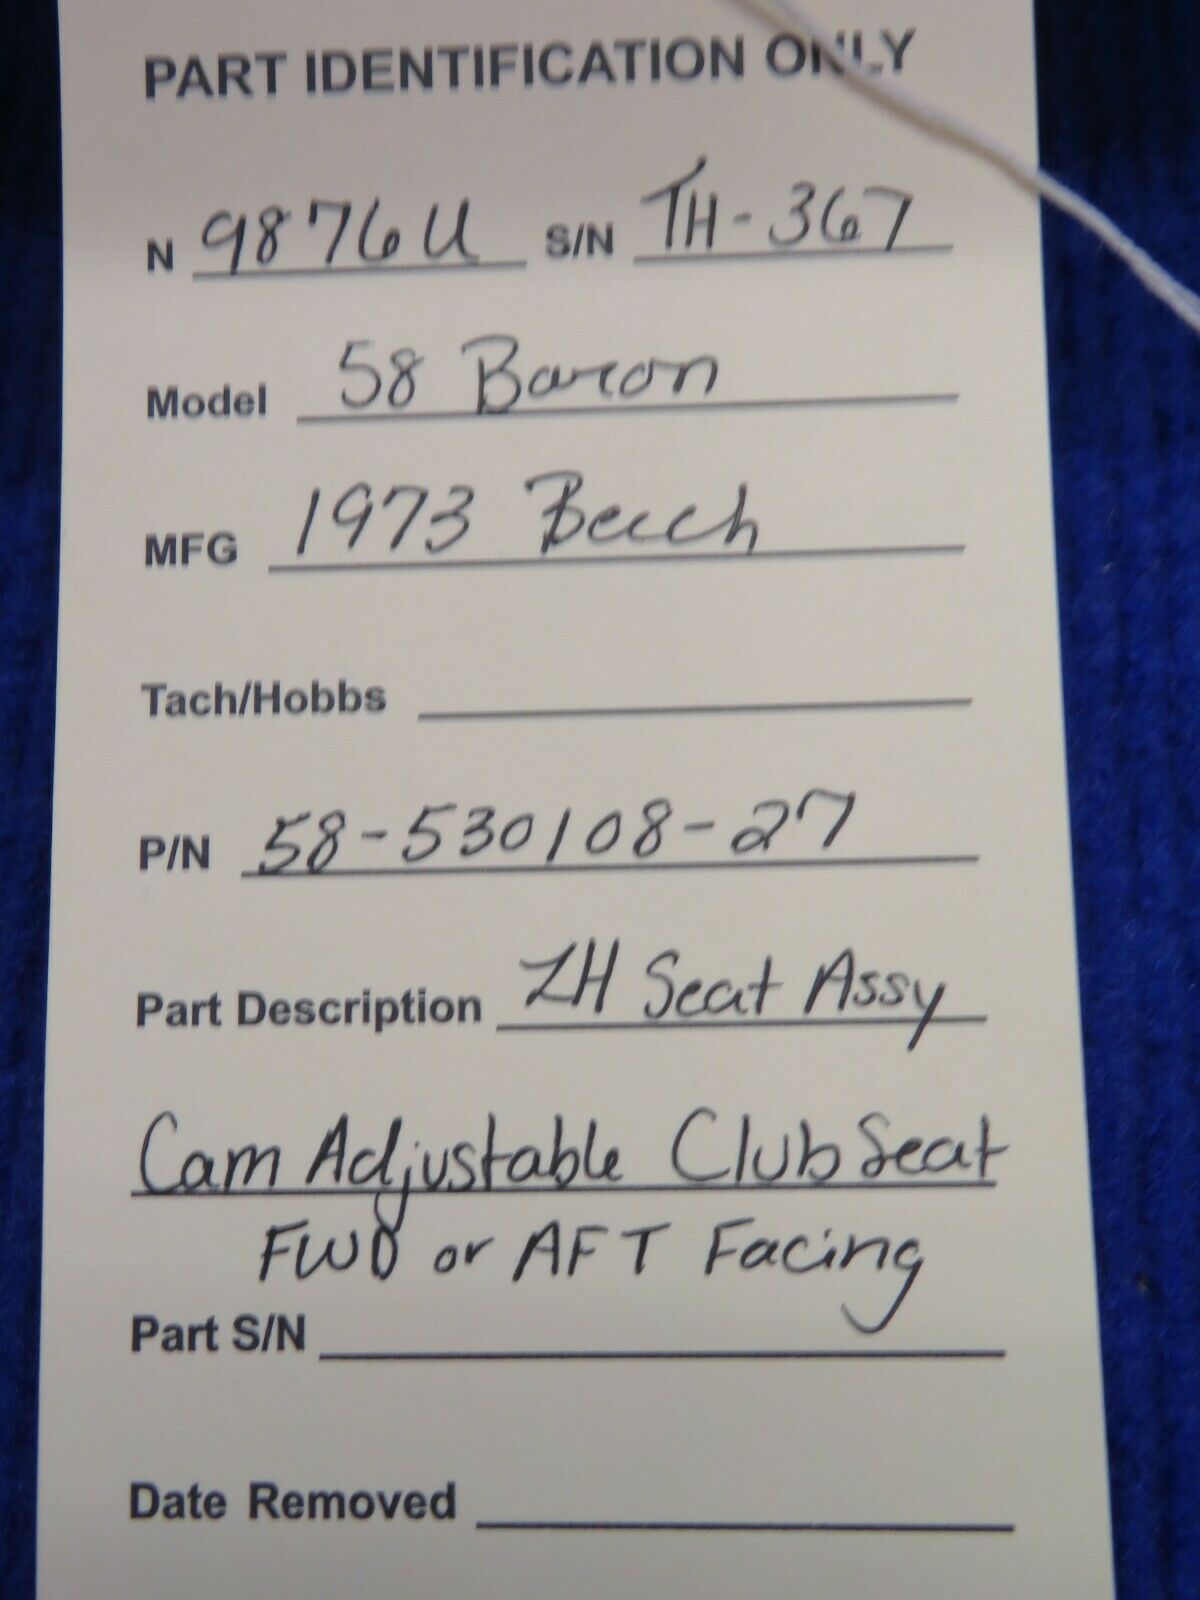 PART IDENTIFICATION ONLY
N 9876U S/N TH-367
Model 58 Baron
MFG 1973 Beech
Tach/Hobbs
P/N 58-530108-27
Part Description LH Seat Assy
Cam Adjustable Club Seat
FWD or AFT Facing
Part S/N
Date Removed